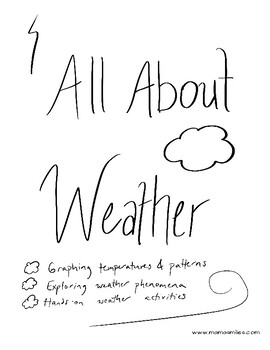 All About
Weather
Graphing temperatures & patterns
Exploring weather phenomena
Hands-on weather activities
www.mamasmiles.com